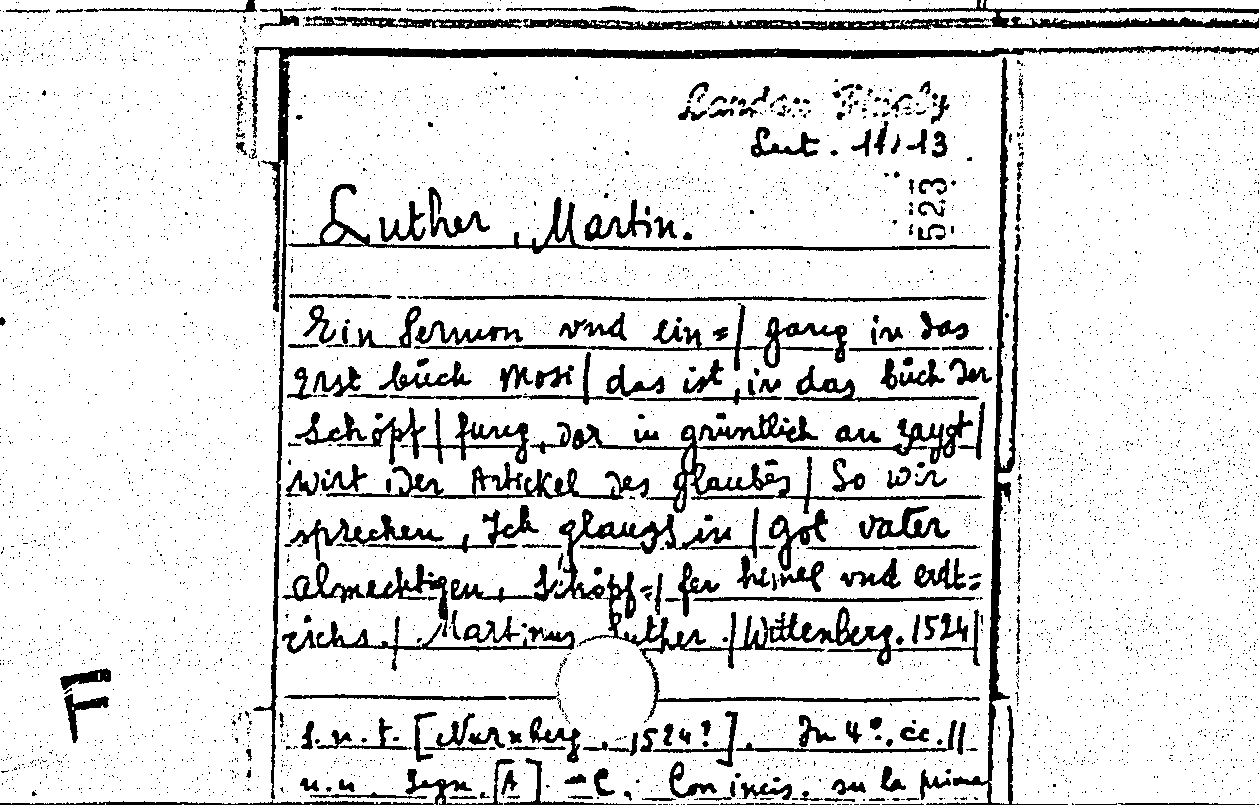 Landau Finaly
Lut. 11/-13
523
Luther, Martin.
Ein Sermon vnd ein=| gang in das
Erst büch Mosi| das ist, in das büch der
Schöpf| fung, dar in gründtlich an zaygt|
wirt der Artickel des glaubēs| So wir
sprechen, Ich glaub in | got vater
Almechtigen, Schöpf=| fer himel vnd erdt=
richs.| Martinus Luther.| Wittenberg. 1524|
S.n.t. [Nürnberg, 1524?]. In 4°. cc. 11
n.n. Segn. [A] - C. Con incis. su la prima
F